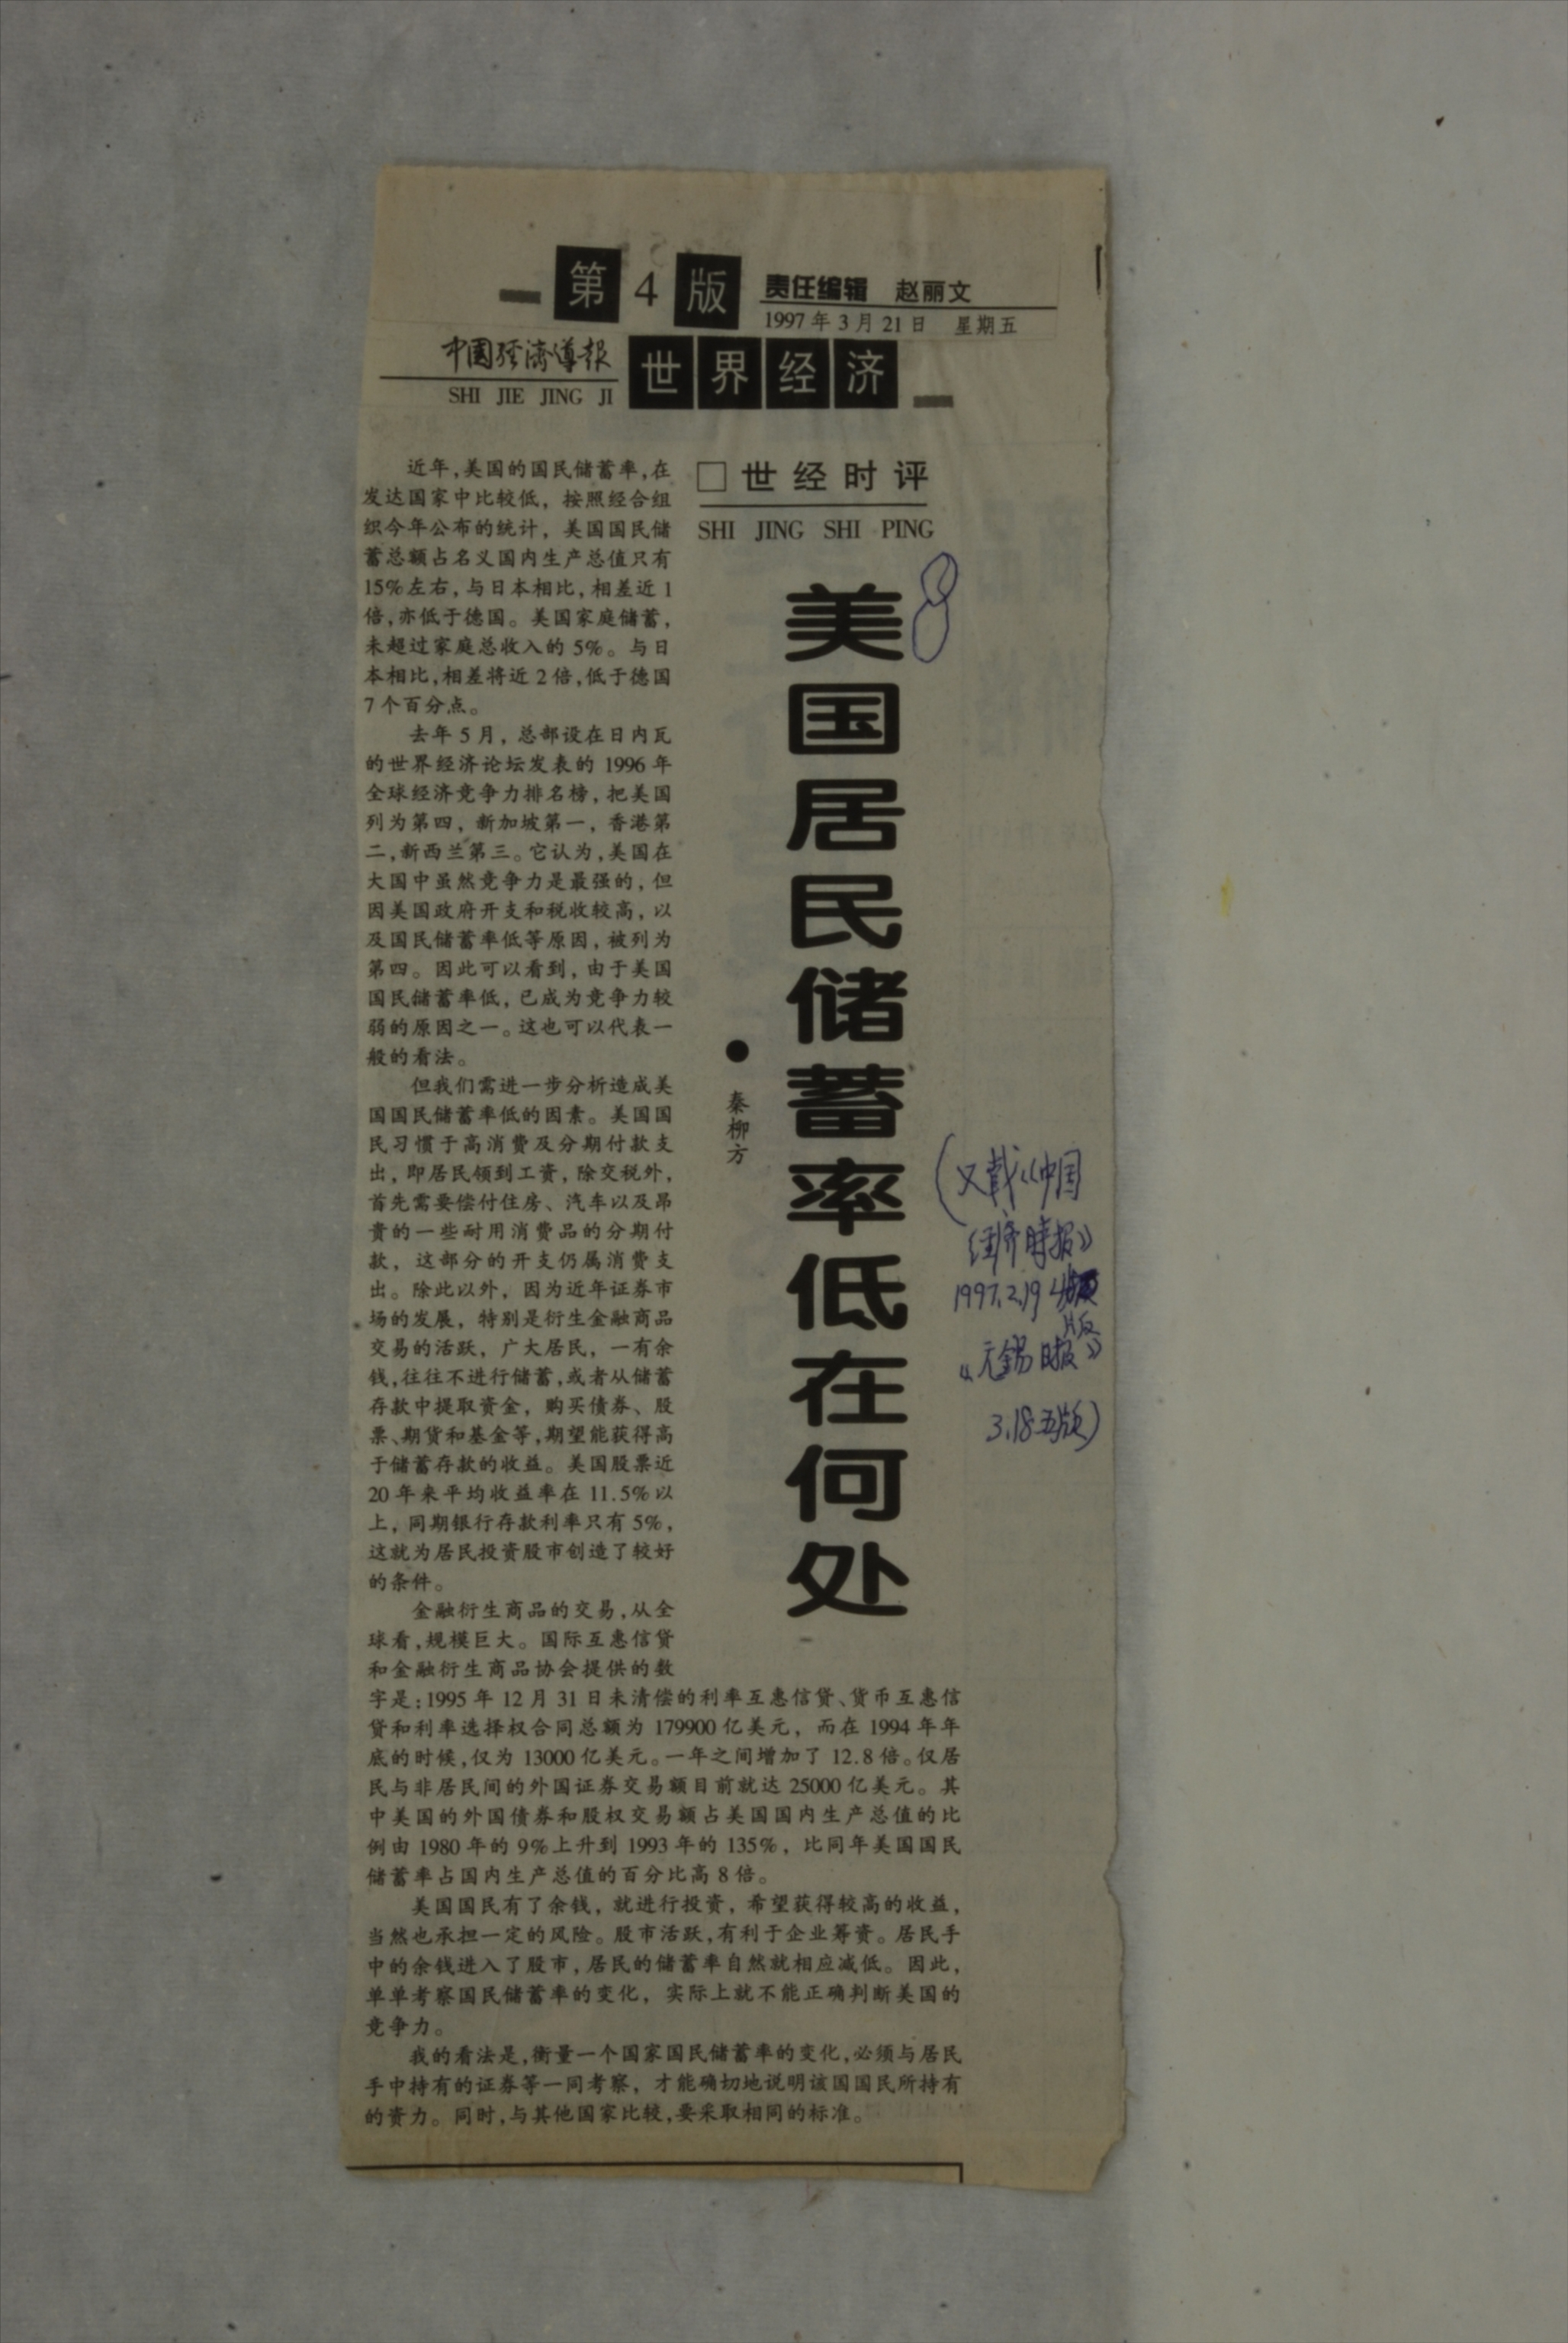 第4版
责任编辑 赵丽文
1997年3月21日 星期五
中国经济导报
世界经济
SHI JIE JING JI
□世经时评
SHI JING SHI PING
美国居民储蓄率低在何处
●秦柳方
近年,美国的国民储蓄率,在
发达国家中比较低,按照经合组
织今年公布的统计,美国国民储
蓄总额占名义国内生产总值只有
15%左右,与日本相比,相差近1
倍,亦低于德国。美国家庭储蓄,
未超过家庭总收入的5%。与日
本相比,相差将近2倍,低于德国
7个百分点。
去年5月,总部设在日内瓦
的世界经济论坛发表的1996年
全球经济竞争力排名榜,把美国
列为第四,新加坡第一,香港第
二,新西兰第三。它认为,美国在
大国中虽然竞争力是最强的,但
因美国政府开支和税收较高,以
及国民储蓄率低等原因,被列为
第四。因此可以看到,由于美国
国民储蓄率低,已成为竞争力较
弱的原因之一。这也可以代表一
般的看法。
但我们需进一步分析造成美
国国民储蓄率低的因素。美国国
民习惯于高消费及分期付款支
出,即居民领到工资,除交税外,
首先需要偿付住房、汽车以及昂
贵的一些耐用消费品的分期付
款,这部分的开支仍属消费支
出。除此以外,因为近年证券市
场的发展,特别是衍生金融商品
交易的活跃,广大居民,一有余
钱,往往不进行储蓄,或者从储蓄
存款中提取资金,购买债券、股
票、期货和基金等,期望能获得高
于储蓄存款的收益。美国股票近
20年来平均收益率在11.5%以
上,同期银行存款利率只有5%,
这就为居民投资股市创造了较好
的条件。
金融衍生商品的交易,从全
球看,规模巨大。国际互惠信贷
和金融衍生商品协会提供的数
字是:1995年12月31日未清偿的利率互惠信贷、货币互惠信
贷和利率选择权合同总额为179900亿美元,而在1994年年
底的时候,仅为13000亿美元。一年之间增加了12.8倍。仅居
民与非居民间的外国证券交易额目前就达25000亿美元。其
中美国的外国债券和股权交易额占美国国内生产总值的比
例由1980年的9%上升到1993年的135%,比同年美国国民
储蓄率占国内生产总值的百分比高8倍。
美国国民有了余钱,就进行投资,希望获得较高的收益,
当然也承担一定的风险。股市活跃,有利于企业筹资。居民手
中的余钱进入了股市,居民的储蓄率自然就相应减低。因此,
单单考察国民储蓄率的变化,实际上就不能正确判断美国的
竞争力。
我的看法是,衡量一个国家国民储蓄率的变化,必须与居民
手中持有的证券等一同考察,才能确切地说明该国国民所持有
的资力。同时,与其他国家比较,要采取相同的标准。
(又载《中国
经济時报》
1997.2.19 4版
《无錫日报》
3.18.五版)